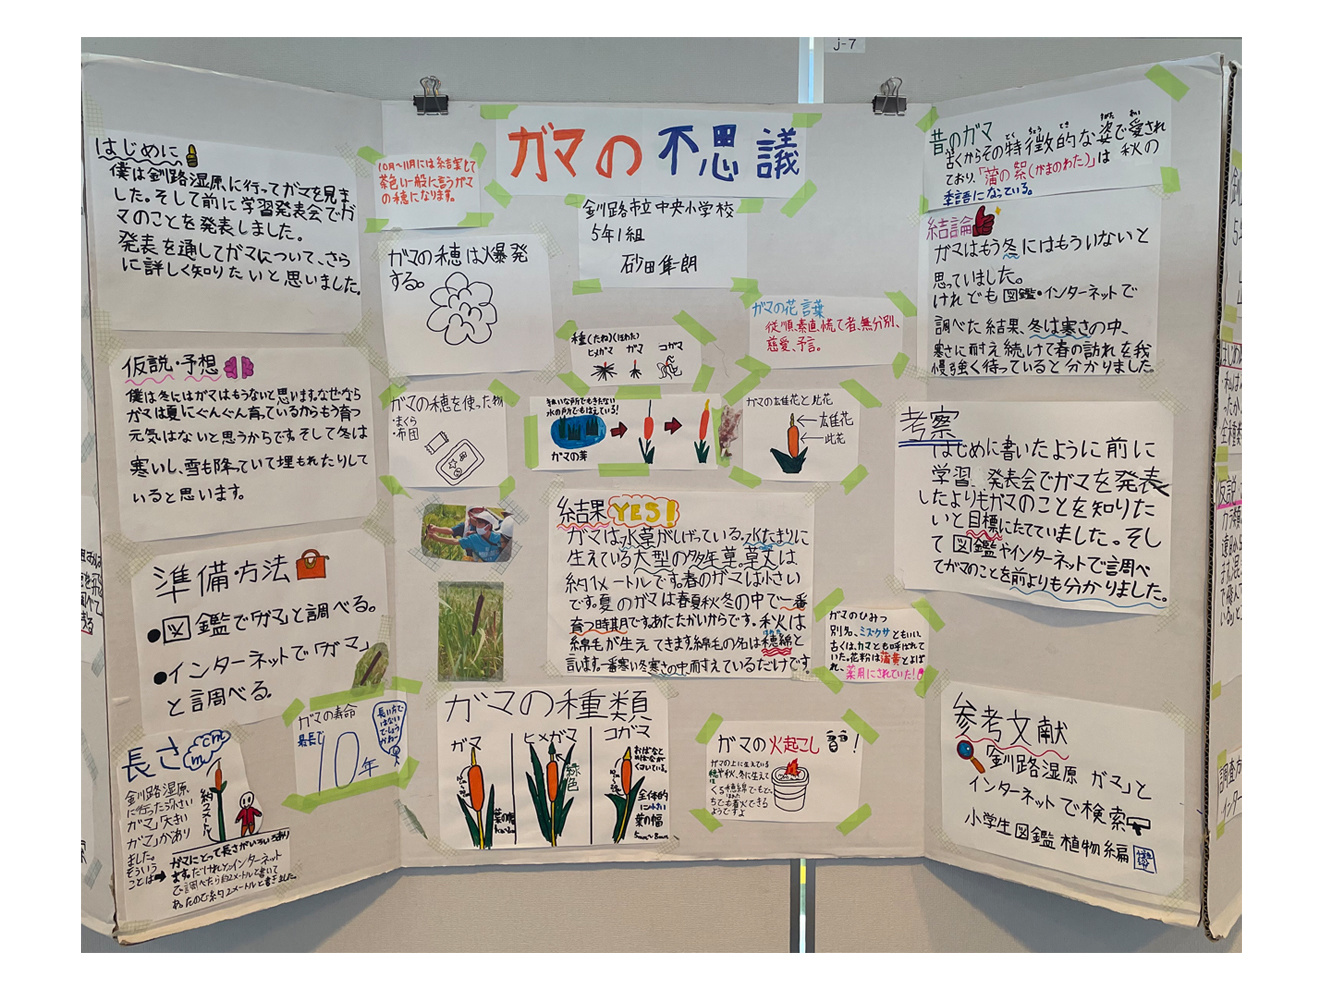 j-7
ガマの不思議
釧路市立中央小学校
5年1組
砂田隼朗
はじめに
僕は釧路湿原に行ってガマを見ま
した。そして前に学習発表会でガ
マのことを発表しました。
発表を通してガマについて、さら
に詳しく知りたいと思いました。
仮説・予想
僕は冬にはガマはもうないと思います。なぜなら
ガマは夏にぐんぐん育っているからもう育つ
元気はないと思うからです。そして冬は
寒いし、雪も降っていて埋もれたりして
いると思います。
準備・方法
●図鑑で「ガマ」と調べる。
●インターネットで「ガマ」
と調べる。
長さ
m cm
釧路湿原
に行ったら小さい
ガマ」「大きい
ガマ」があり
ました。
そういう
ことは➡
約2メートル
ガマにとって長さがいろいろあり
ます。だけれどインターネット
で調べたら約2メートルと書いて
あったので約2メートルと書きました。
ガマの寿命
最長で
10年
長い方で
はない
でしょう
か
10月～11月には結実して
茶色い一般に言うガマ
の穂になります。
ガマの穂は爆発
する。
ガマの穂を使った物
・まくら
・布団
種(たね)(ほわた)
ヒメガマ ガマ コガマ
ガマの花言葉
従順、素直、慌て者、無分別、
慈愛、予言。
水の所でもはえている!
ガマの芽
ガマの雄花と雌花
←雄花
←雌花
結果 YES!
ガマは水草がしげっている。水たまりに
生えている大型の多年草。草丈は
約1メートルです。春のガマは小さい
です。夏のガマは春夏秋冬の中で一番
育つ時期です。あたたかいからです。秋は
綿毛が生えてきます。綿毛の名は穂綿と
言います。一番寒い冬寒さの中耐えているだけです。
ガマのひみつ
別名、ミズクサともいい、
古くは、カマとも呼ばれて
いた。花粉は蒲黄とよば
れ、薬用にされていた!
ガマの種類
ガマ
ヒメガマ
コガマ
緑色
葉の幅
おばなと
めばなが
くっついている。
全体的
に小さい
葉の幅
5mm～8mm
ガマの火起こし
ガマの上に生えている
穂や秋、冬に生えて
くる穂綿でもどっ
ちでも着火できる
ようですよ
昔のガマ
古くからその特徴的な姿で愛され
とく ちょう てき すがた あい
ており、「蒲の絮(がまのわた)」は秋の
季語になっている。
結論
ガマはもう冬にはもういないと
思っていました。
けれども図鑑・インターネットで
調べた結果、冬は寒さの中、
寒さに耐え続けて春の訪れを我
慢強く待っていると分かりました。
考察
はじめに書いたように前に
学習発表会でガマを発表
したよりもガマのことを知りた
いと目標にたてていました。そし
て図鑑やインターネットで調べ
てガマのことを前よりも分かりました。
参考文献
「釧路湿原 ガマ」と
インターネットで検索
小学生図鑑植物編